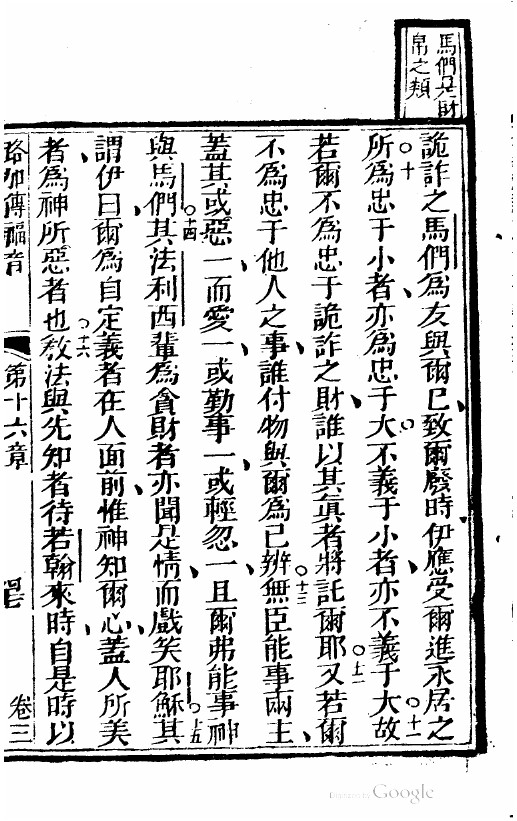 馬們是財
帛之類
詭詐之馬們為友與爾已致爾廢時伊應受爾進永居之
所○十為忠于小者亦為忠于大不義于小者亦不義于大○十一故
若爾不為忠于詭詐之財誰以其眞者將託爾耶○十二又若爾
不為忠于他人之事誰付物與爾為己辨○十三無臣能事兩主
蓋其或惡一而愛一或勤事一或輕忽一且爾弗能事神
與馬們○十四其法利西輩為貪財者亦聞是情而戲矣○十五耶穌其
謂伊曰爾為自定義者在人面前惟神知爾心蓋人所美
者為神所惡者也○十六教法與先知者待若翰來時自是時以
路加傳福音 第十六章 卷三
Digitized by Google